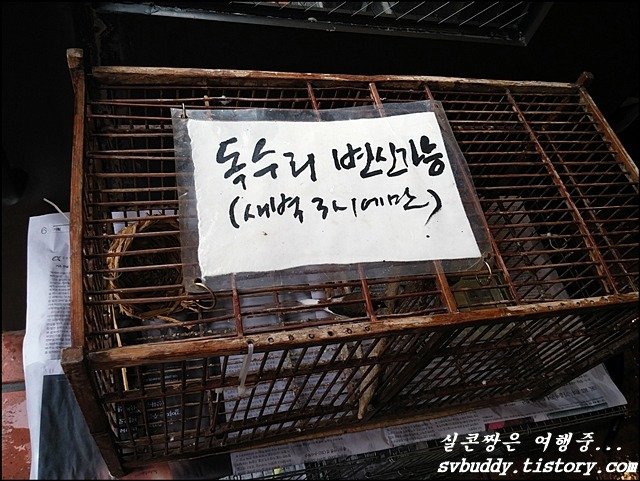 독수리 변신가능
(새벽 3시에만)
실콘짱은 여행중...
svbuddy.tistory.com